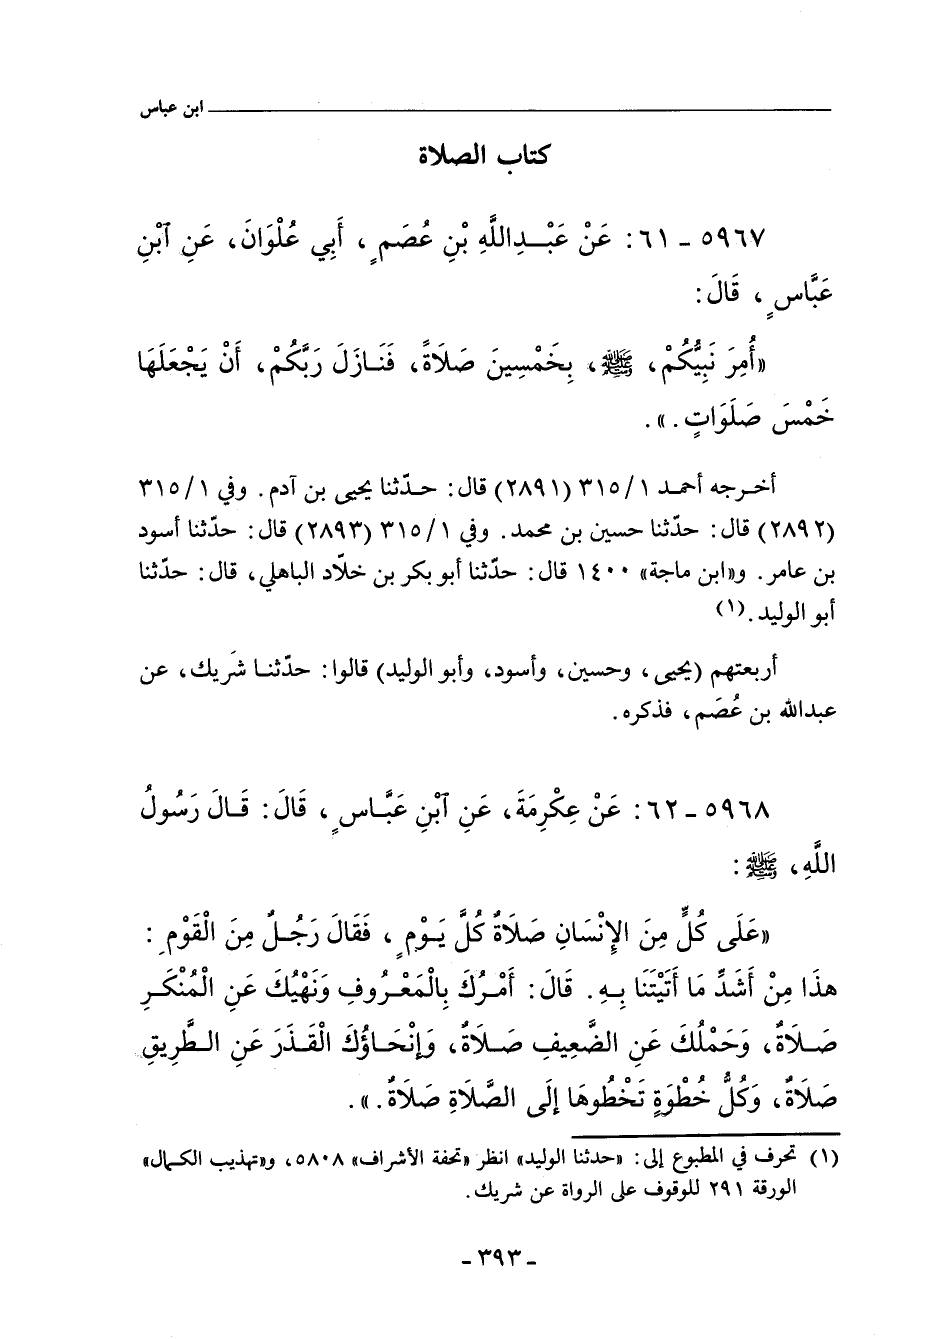 ابن عباس
كتاب الصلاة
٥٩٦٧ - ٦١: عَنْ عَبْدِاللَّهِ بْنِ عُصَمٍ، أَبِي عُلْوَانَ، عَنِ ٱبْنِ
عَبَّاسٍ، قَالَ:
«أُمِرَ نَبِيُّكُمْ، ﷺ، بِخَمْسِينَ صَلَاةً، فَنَازَلَ رَبَّكُمْ، أَنْ يَجْعَلَهَا
خَمْسَ صَلَوَاتٍ.».
أخرجه أحمد ٣١٥/١ (٢٨٩١) قال: حدّثنا يحيى بن آدم. وفي ٣١٥/١
(٢٨٩٢) قال: حدّثنا حسين بن محمد. وفي ٣١٥/١ (٢٨٩٣) قال: حدّثنا أسود
بن عامر. و«ابن ماجة» ١٤٠٠ قال: حدّثنا أبو بكر بن خلاّد الباهلي، قال: حدّثنا
أبو الوليد.(١)
أربعتهم (يحيى، وحسين، وأسود، وأبو الوليد) قالوا: حدّثنا شَريك، عن
عبدالله بن عُصَم، فذكره.
٥٩٦٨ - ٦٢: عَنْ عِكْرِمَةَ، عَنِ ٱبْنِ عَبَّاسٍ، قَالَ: قَالَ رَسُولُ
اللَّهِ، ﷺ:
«عَلَى كُلٍّ مِنَ الإِنْسَانِ صَلَاةٌ كُلَّ يَوْمٍ، فَقَالَ رَجُلٌ مِنَ الْقَوْمِ:
هذَا مِنْ أَشَدِّ مَا أَتَيْتَنَا بِهِ. قَالَ: أَمْرُكَ بِالْمَعْرُوفِ وَنَهْيُكَ عَنِ الْمُنْكَرِ
صَلَاةٌ، وَحَمْلُكَ عَنِ الضَّعِيفِ صَلَاةٌ، وَإِنْحَاؤُكَ الْقَذَرَ عَنِ الطَّرِيقِ
صَلَاةٌ، وَكُلُّ خُطْوَةٍ تَخْطُوهَا إِلَى الصَّلَاةِ صَلَاةٌ.».
(١) تحرف في المطبوع إلى: «حدثنا الوليد» انظر «تحفة الأشراف» ٥٨٠٨، و«تهذيب الكمال»
الورقة ٢٩١ للوقوف على الرواة عن شريك.
- ٣٩٣ -